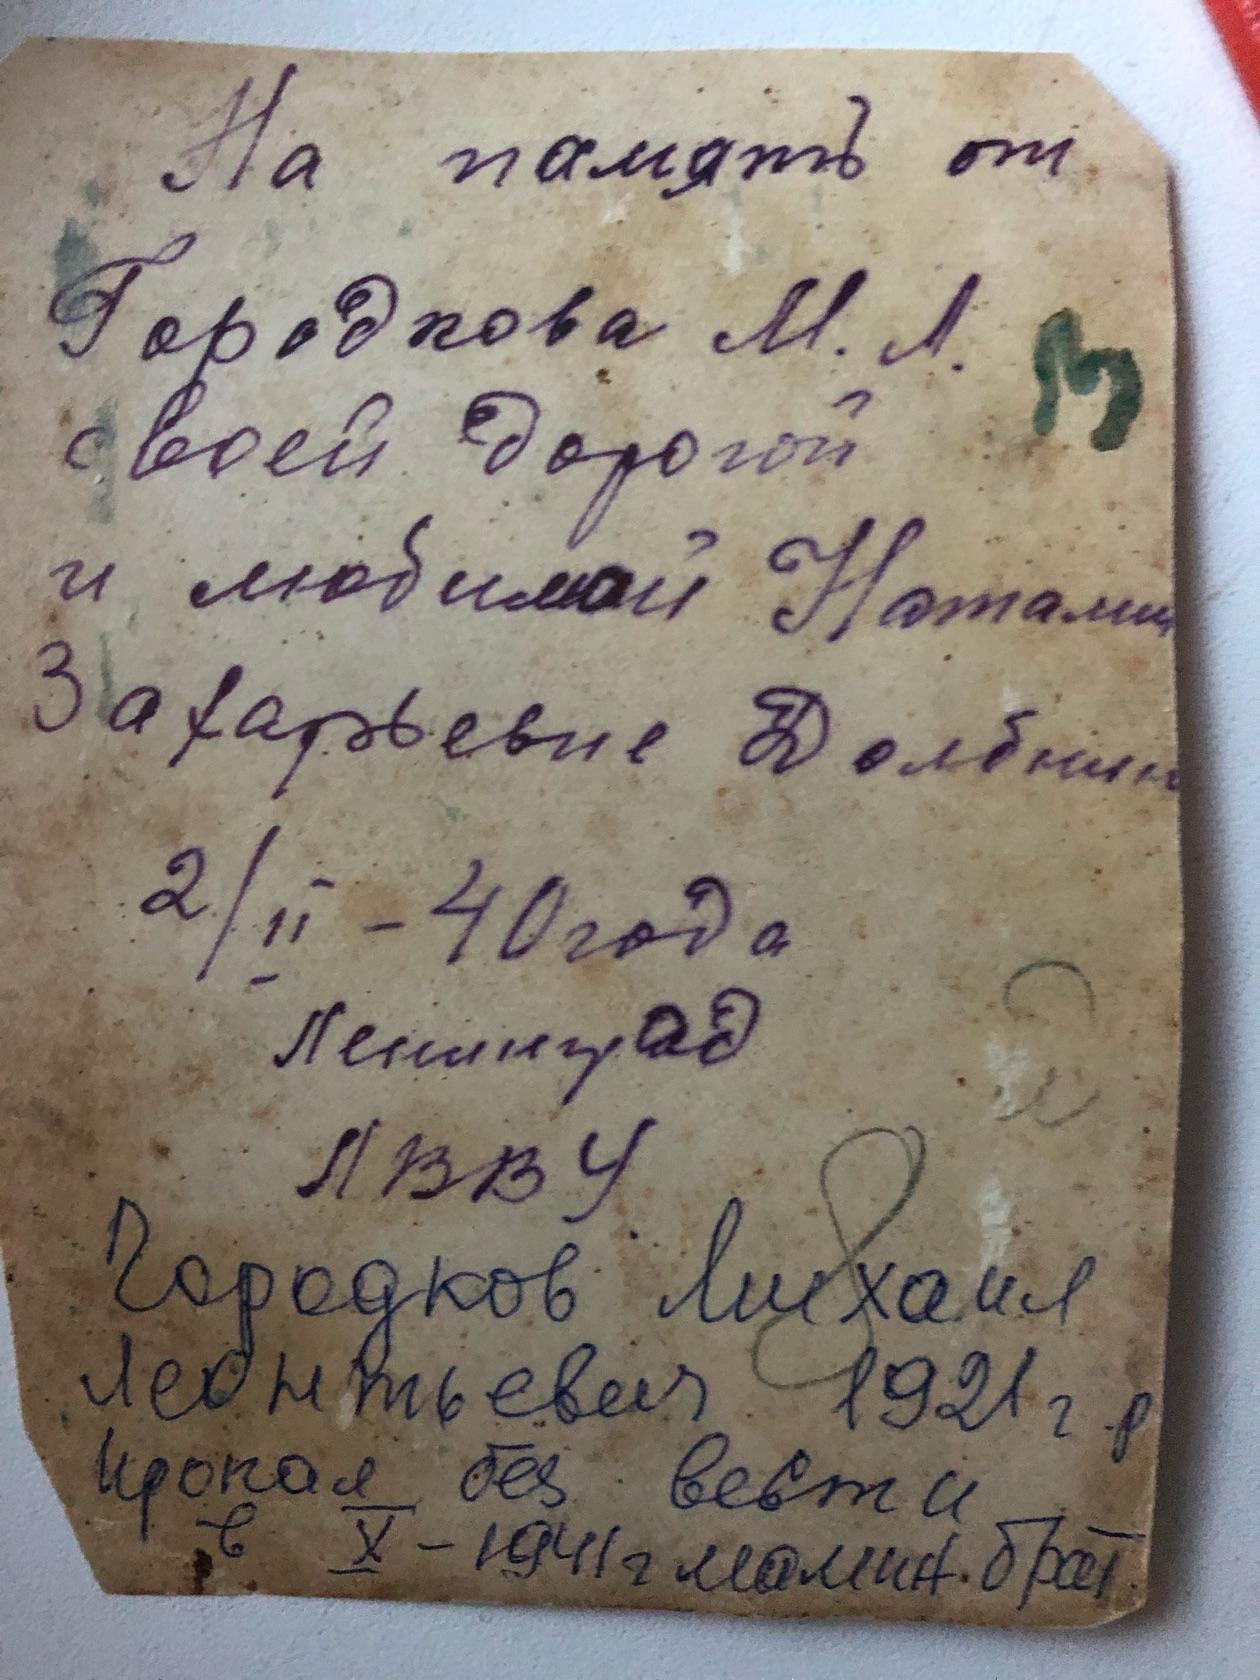 На память от
Городкова М. Л.
своей дорогой
и любимой Натали
Захарьевне Долбнин
2/II – 40 года
Ленинград
ЛВВУ
Городков Михаил
Леонтьевич 1921 г.р
пропал без вести
в X – 1941 г мамин. брат.